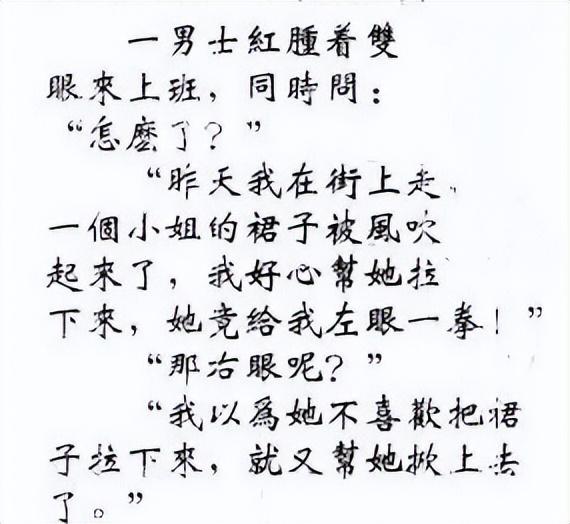 一男士紅腫着雙
眼來上班，同時問：
“怎麽了？”
“昨天我在街上走，
一個小姐的裙子被風吹
起來了，我好心幫她拉
下來，她竟給我左眼一拳！”
“那冶眼呢？”
“我以爲她不喜歡把裙
子拉下來，就又幫她掀上去
了。”